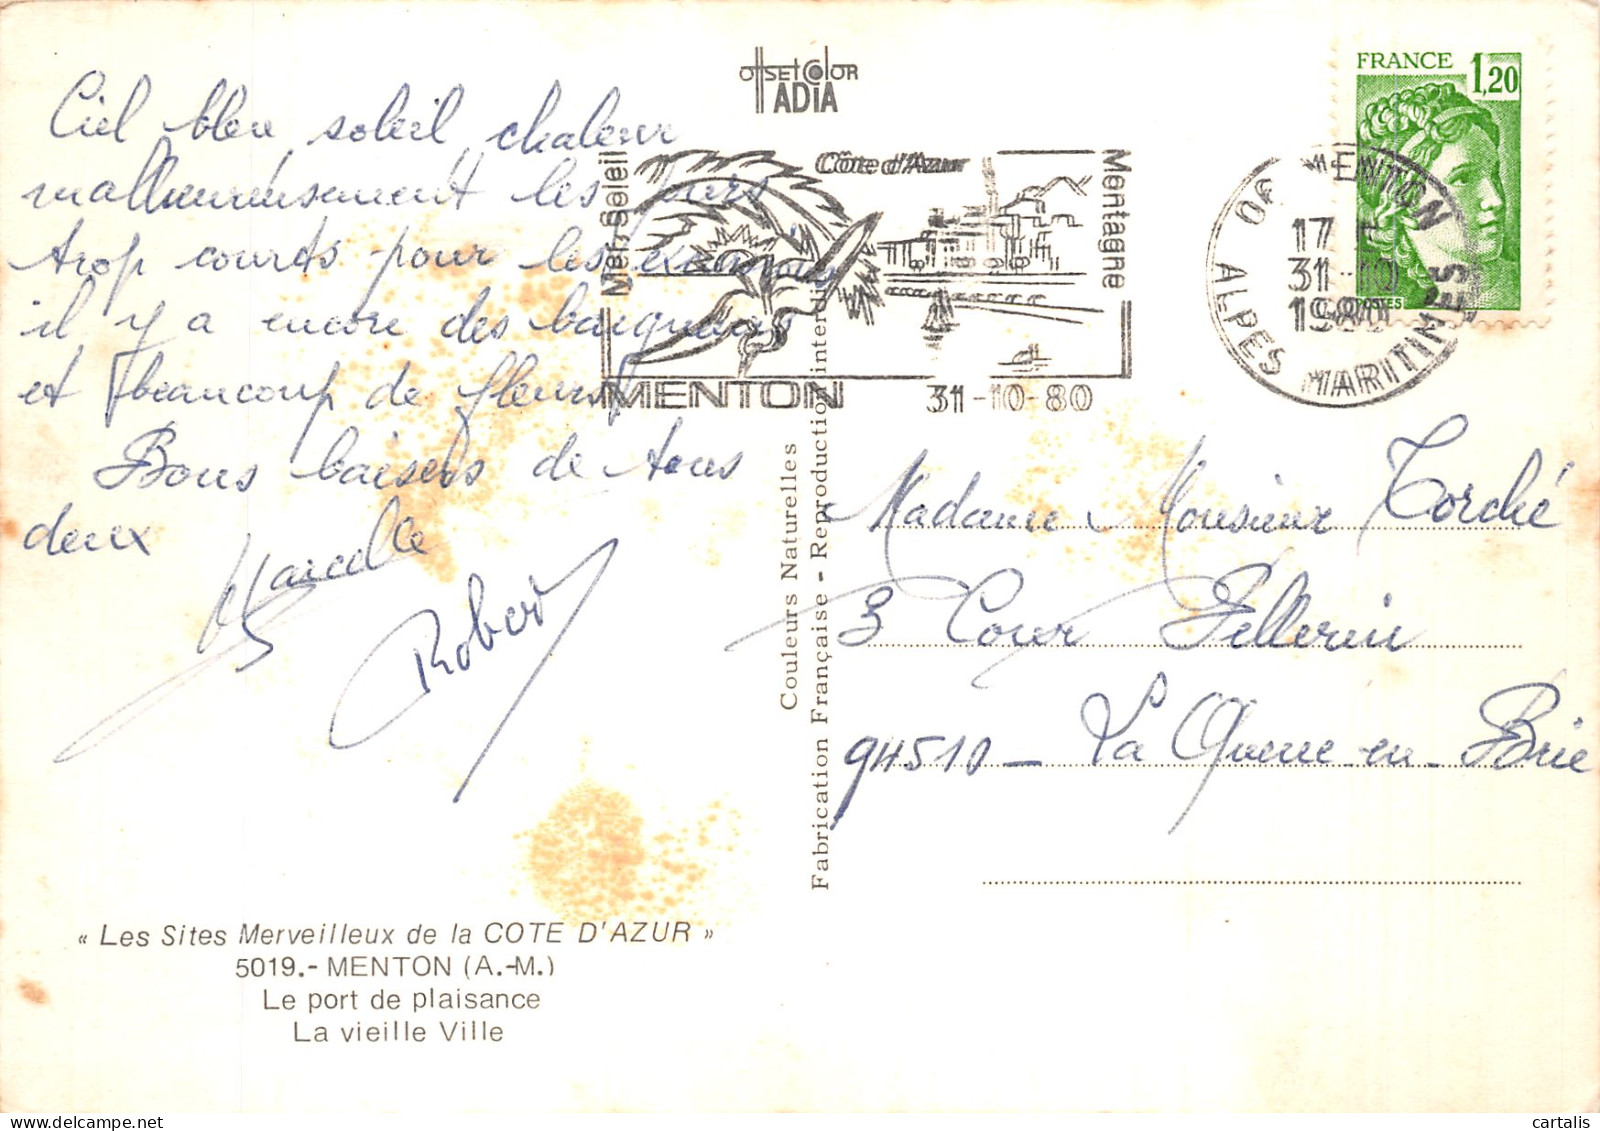 Ciel bleu, soleil, chaleur
malheureusement les jours
trop courts pour les
il y a encore des baigneurs
et beaucoup de fleurs
Bons baisers de tous
deux
Marcelle
Robert
« Les Sites Merveilleux de la COTE D'AZUR »
5019.- MENTON (A.-M.)
Le port de plaisance
La vieille Ville
OffSET COlOR
ADIA
Mer, Soleil
Côte d'Azur
Montagne
MENTON
31-10-80
Couleurs Naturelles
Fabrication Française - Reproduction interdite
FRANCE 1,20
POSTES
06 MENTON
17 H
31-10
1980
ALPES MARITIMES
Madame Monsieur Torché
3 Cour Pellerin
94510 - La Queue-en-Brie
cartalis